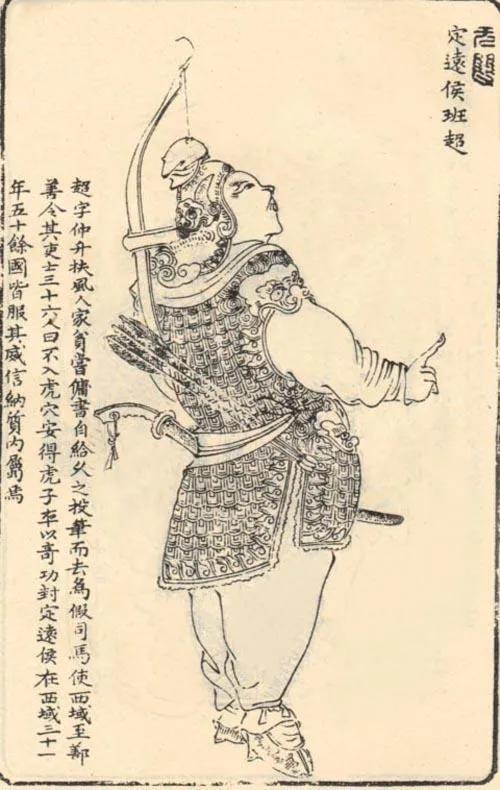 定遠侯班超
超字仲升扶風人家貧嘗傭書自給久之投筆而去爲假司馬使西域至鄯
善令其吏士三十六人曰不入虎穴安得虎子卒以奇功封定遠侯在西域三十一
年五十餘國皆服其威信納質內屬焉